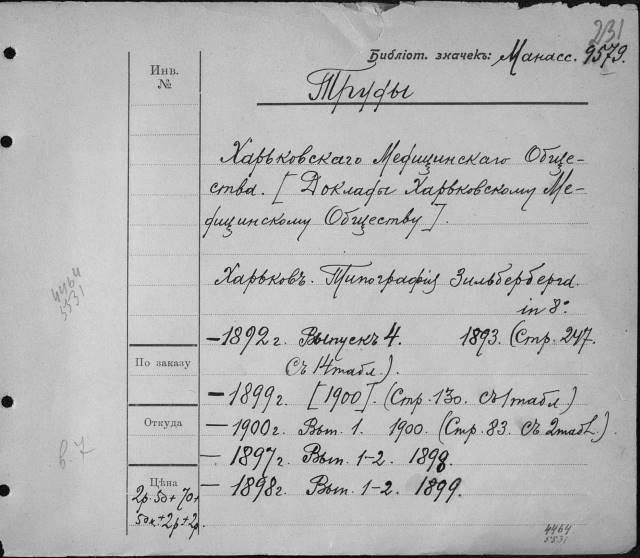 231
Библіот. значекъ: Манасс. 9579.
Инв.
№
Труды
Харьковскаго Медицинскаго Обще-
ства. [Доклады Харьковскому Ме-
дицинскому Обществу].
4464
5531
Харьковъ. Типографія Зильберберга.
in 8°.
— 1892 г. Выпускъ 4. 1893. (Стр. 247.
съ 14 табл.).
По заказу
— 1899 г. [1900]. (Стр. 130. съ 1 табл)
Откуда
— 1900 г. Вып. 1. 1900. (Стр. 83. съ 2 табл.).
в. 7
— 1897 г. Вып. 1-2. 1898.
Цѣна
— 1898 г. Вып. 1-2. 1899.
2р. 50 + 70 +
50к. + 2р + 2р.
4464
5531